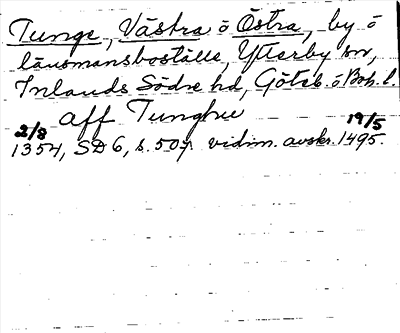 Tunge, Västra o Östra, by o
länsmansboställe, Ytterby sn,
Inlands Södre hd, Göteb. o Boh. l.
aff Tunghu
2/8 19/5
1354, SD 6, s. 507 vidim. avskr. 1495.